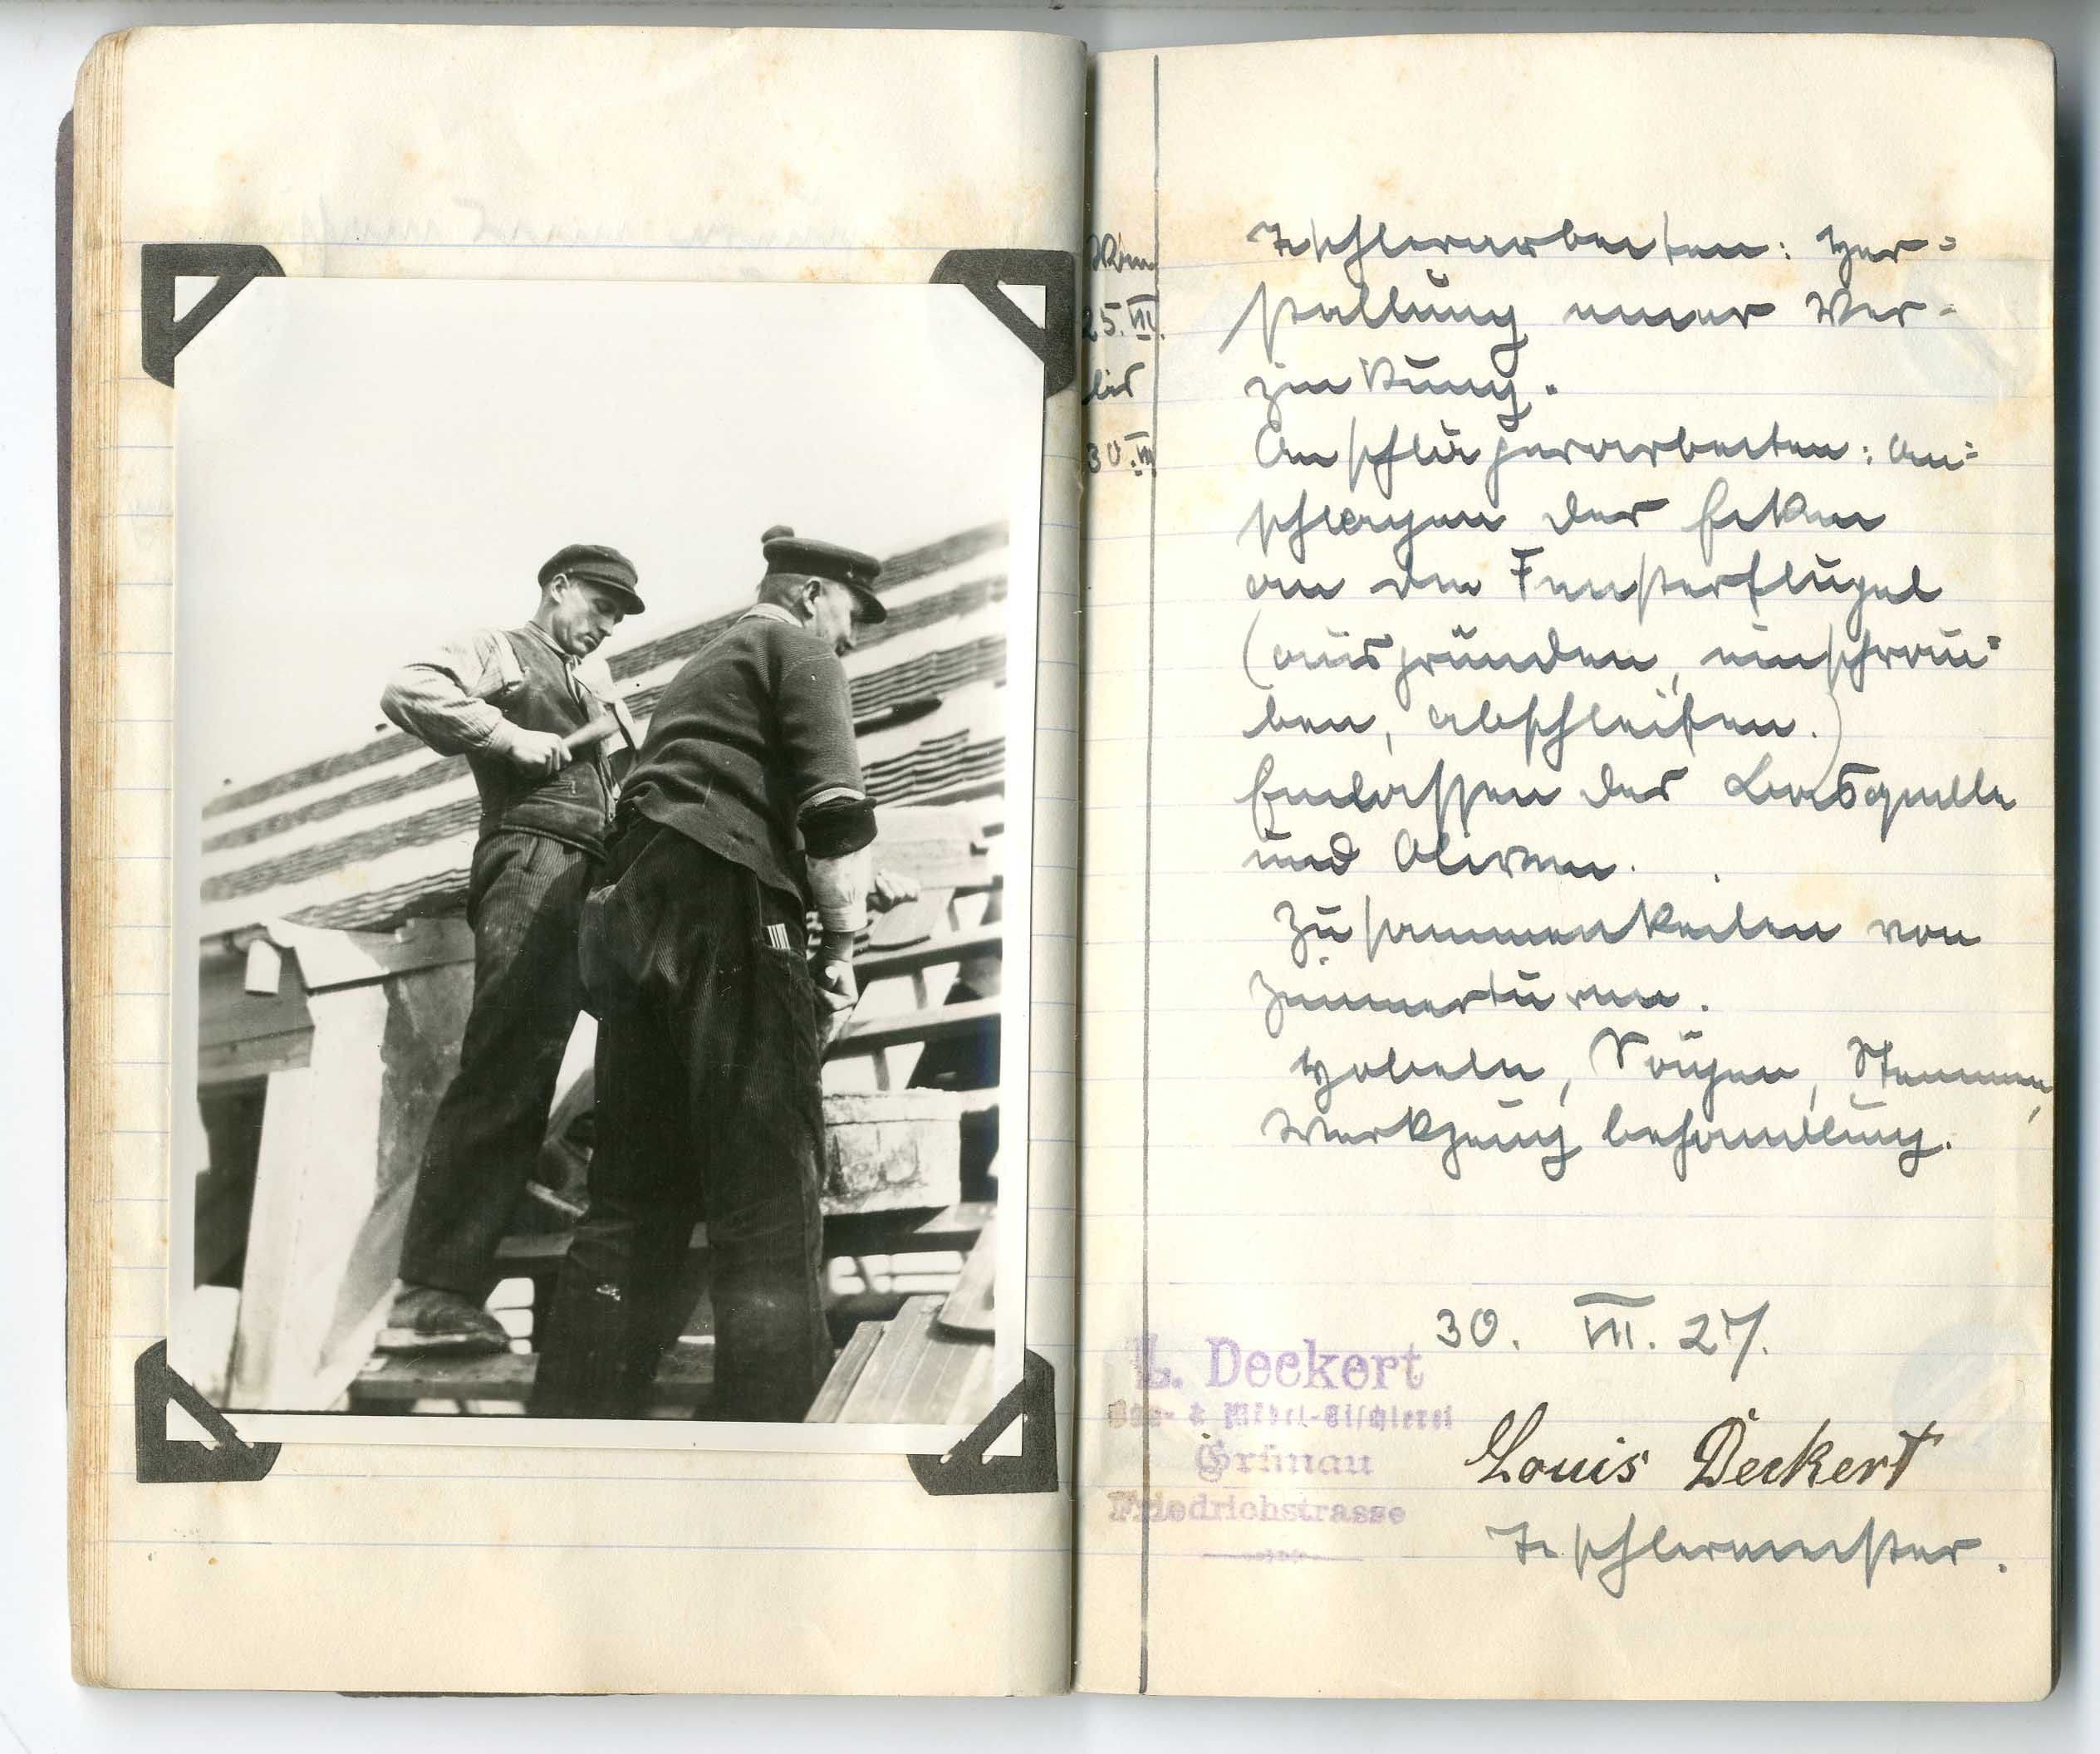 Vom
25.VII.
bis
30.VII.
Tischlerarbeiten: Her=
stellung einer Ver-
zinkung.
Anschlägerarbeiten: An=
schlagen der Ecken
an die Fensterflügel
(ausgründen, einschrau=
ben, abschleifen.)
Einlassen der Basquelle
und Oliven.
Zusammenkeilen von
Zimmertüren.
Hobeln, Sägen, Stemmen,
Werkzeug behandlung.
30. VII. 27.
L. Deckert
Bau- & Möbel-Tischlerei
Grünau
Friedrichstrasse
Louis Deckert
Tischlermeister.